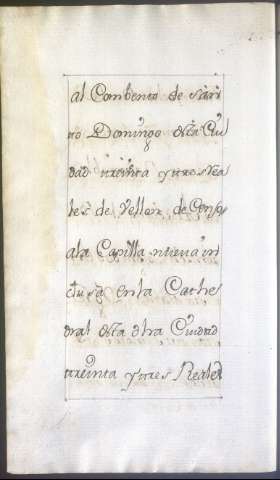 al Combento de San
to Domingo desta Ciu
dad treinta y tres rea
les de Vellon, de Censo,
a la Capilla nueva in
clusa en la Cathe
dral desta dha Ciudad
treinta y tres Reales